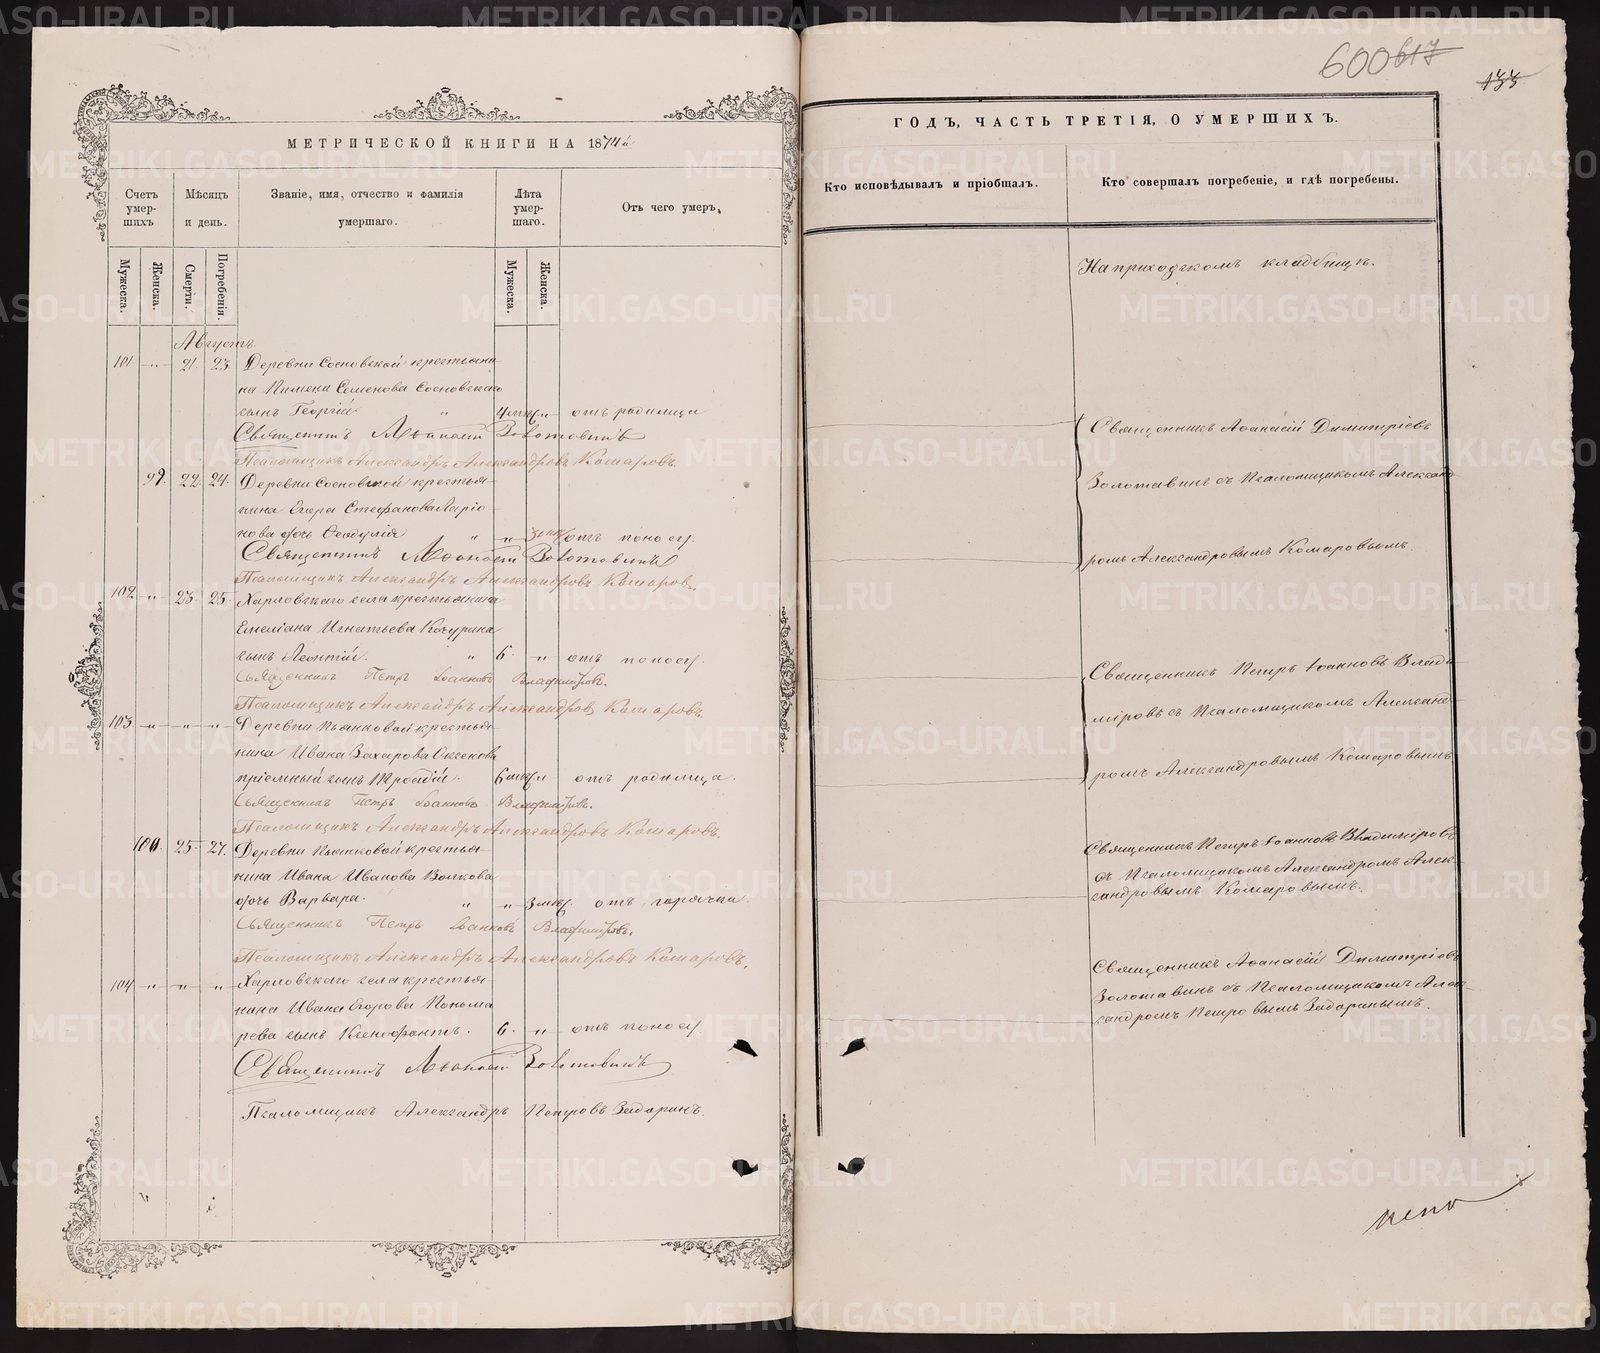 600 617
133
МЕТРИЧЕСКОЙ КНИГИ НА 1874й
Счетъ умер- шихъ
Мѣсяцъ и день.
Званіе, имя, отчество и фамилія умершаго.
Лѣта умер- шаго.
Отъ чего умеръ,
Мужеска.
Женска.
Смерти.
Погребенія.
Мужеска.
Женска.
Августъ
101 „ 21. 23. Деревни Сосновской крестьяни-
на Пимена Семенова Сосновскаго
сынъ Георгій „ 4 мѣс „ отъ родимца
Священникъ Аѳанасій Золотавинъ
Псаломщикъ Александръ Александровъ Комаровъ.
99. 22. 24. Деревни Сосновской крестья-
нина Егора Стефанова Ларіо-
нова дочь Ѳеодулія „ „ отъ поносу.
Священникъ Аѳанасій Золотавинъ
Псаломщикъ Александръ Александровъ Комаровъ.
102 „ 23. 25. Харловскаго села крестьянина
Емеліана Игнатьева Кочурина
сынъ Леонтій. „ 6. „ отъ поносу.
Священникъ Петръ Іоанновъ Владиміровъ.
Псаломщикъ Александръ Александровъ Комаровъ.
103 „ „ „ Деревни Пьянковой крестья-
нина Ивана Захарова
пріемный сынъ 6 мѣс „ отъ родимца.
Священникъ Петръ Іоанновъ Владиміровъ.
Псаломщикъ Александръ Александровъ Комаровъ.
100. 25. 27. Деревни Пьянковой крестья-
нина Ивана Иванова Волкова
дочь Варвара. „ „ 3 мѣс. отъ горячки.
Священникъ Петръ Іоанновъ Владиміровъ.
Псаломщикъ Александръ Александровъ Комаровъ.
104 „ „ „ Харловскаго села крестья-
нина Ивана Егорова Понома-
рева сынъ Ксенофонтъ. 6. „ отъ поносу
Священникъ Аѳанасій Золотавинъ
Псаломщикъ Александръ Петровъ Задоринъ.
ГОДЪ, ЧАСТЬ ТРЕТІЯ, О УМЕРШИХЪ.
Кто исповѣдывалъ и пріобщалъ.
Кто совершалъ погребеніе, и гдѣ погребены.
На приходскомъ кладбищѣ.
Священникъ Аѳанасій Димитріевъ
Золотавинъ съ Псаломщикомъ Александ-
ромъ Александровымъ Комаровымъ.
Священникъ Петръ Іоанновъ Влади-
міровъ съ Псаломщикомъ Александ-
ромъ Александровымъ Комаровымъ
Священникъ Петръ Іоанновъ Владиміровъ
съ Псаломщикомъ Александромъ Алек-
сандровымъ Комаровымъ.
Священникъ Аѳанасій Димитріевъ
Золотавинъ съ Псаломщикомъ Алек-
сандромъ Петровымъ Задоринымъ.
METRIKI.GASO-URAL.RU